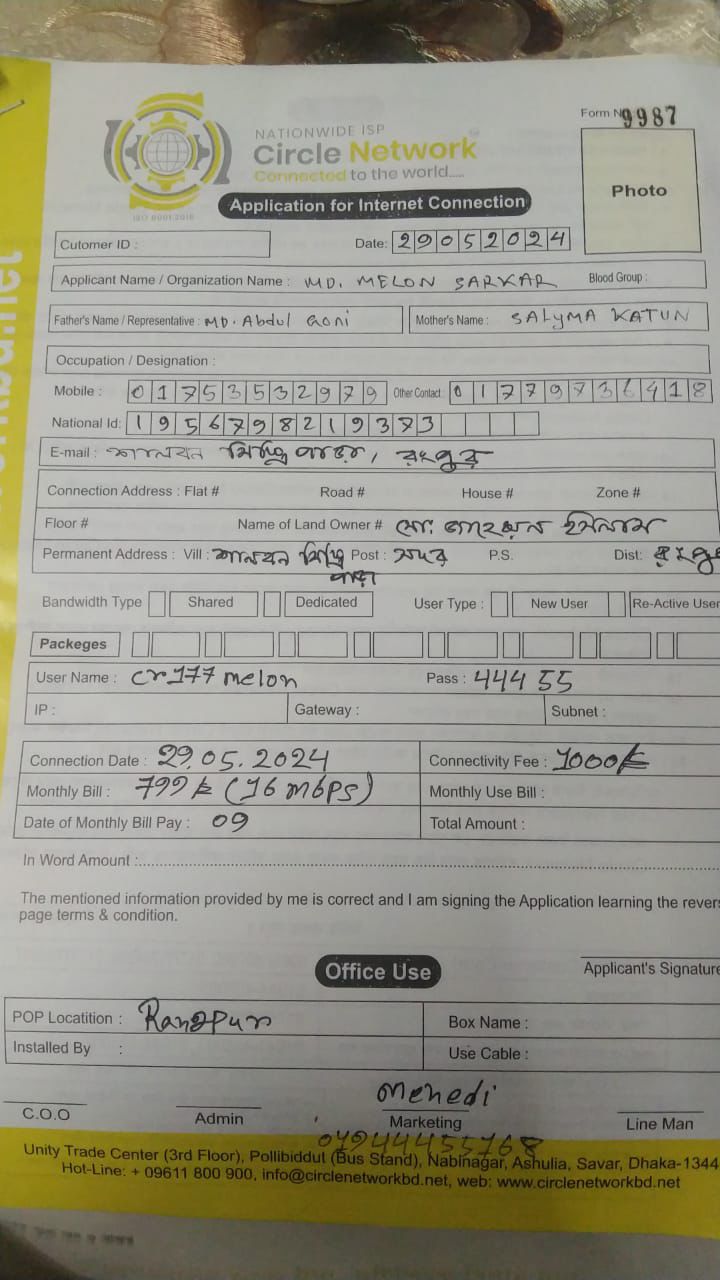 Form N 9987
NATIONWIDE ISP
Circle Network
Connected to the world.....
ISO 9001:2015
Application for Internet Connection
Photo
Cutomer ID :
Date: 29052024
Applicant Name / Organization Name : MD. MELON SARKAR Blood Group :
Father's Name / Representative : MD. Abdul Goni Mother's Name : SALYMA KATUN
Occupation / Designation :
Mobile : 01753532979 Other Contact : 01779736418
National Id: 1956798219373
E-mail : শালবন মিস্ত্রি পাড়া, রংপুর
Connection Address : Flat # Road # House # Zone #
Floor # Name of Land Owner # মো. ইসলাম
Permanent Address : Vill : শালবন মিস্ত্রি পাড়া Post : সদর P.S. Dist: রংপু
Bandwidth Type Shared Dedicated User Type : New User Re-Active User
Packeges
User Name : cr177melon Pass : 44455
IP : Gateway : Subnet :
Connection Date : 29.05.2024 Connectivity Fee : 1000
Monthly Bill : 799 (16 mbps) Monthly Use Bill :
Date of Monthly Bill Pay : 09 Total Amount :
In Word Amount :
The mentioned information provided by me is correct and I am signing the Application learning the revers
page terms & condition.
Applicant's Signature
Office Use
POP Locatition : Rangpur Box Name :
Installed By : Use Cable :
Mehedi
C.O.O Admin Marketing Line Man
01944455168
Unity Trade Center (3rd Floor), Pollibiddut (Bus Stand), Nabinagar, Ashulia, Savar, Dhaka-1344
Hot-Line: + 09611 800 900, info@circlenetworkbd.net, web: www.circlenetworkbd.net